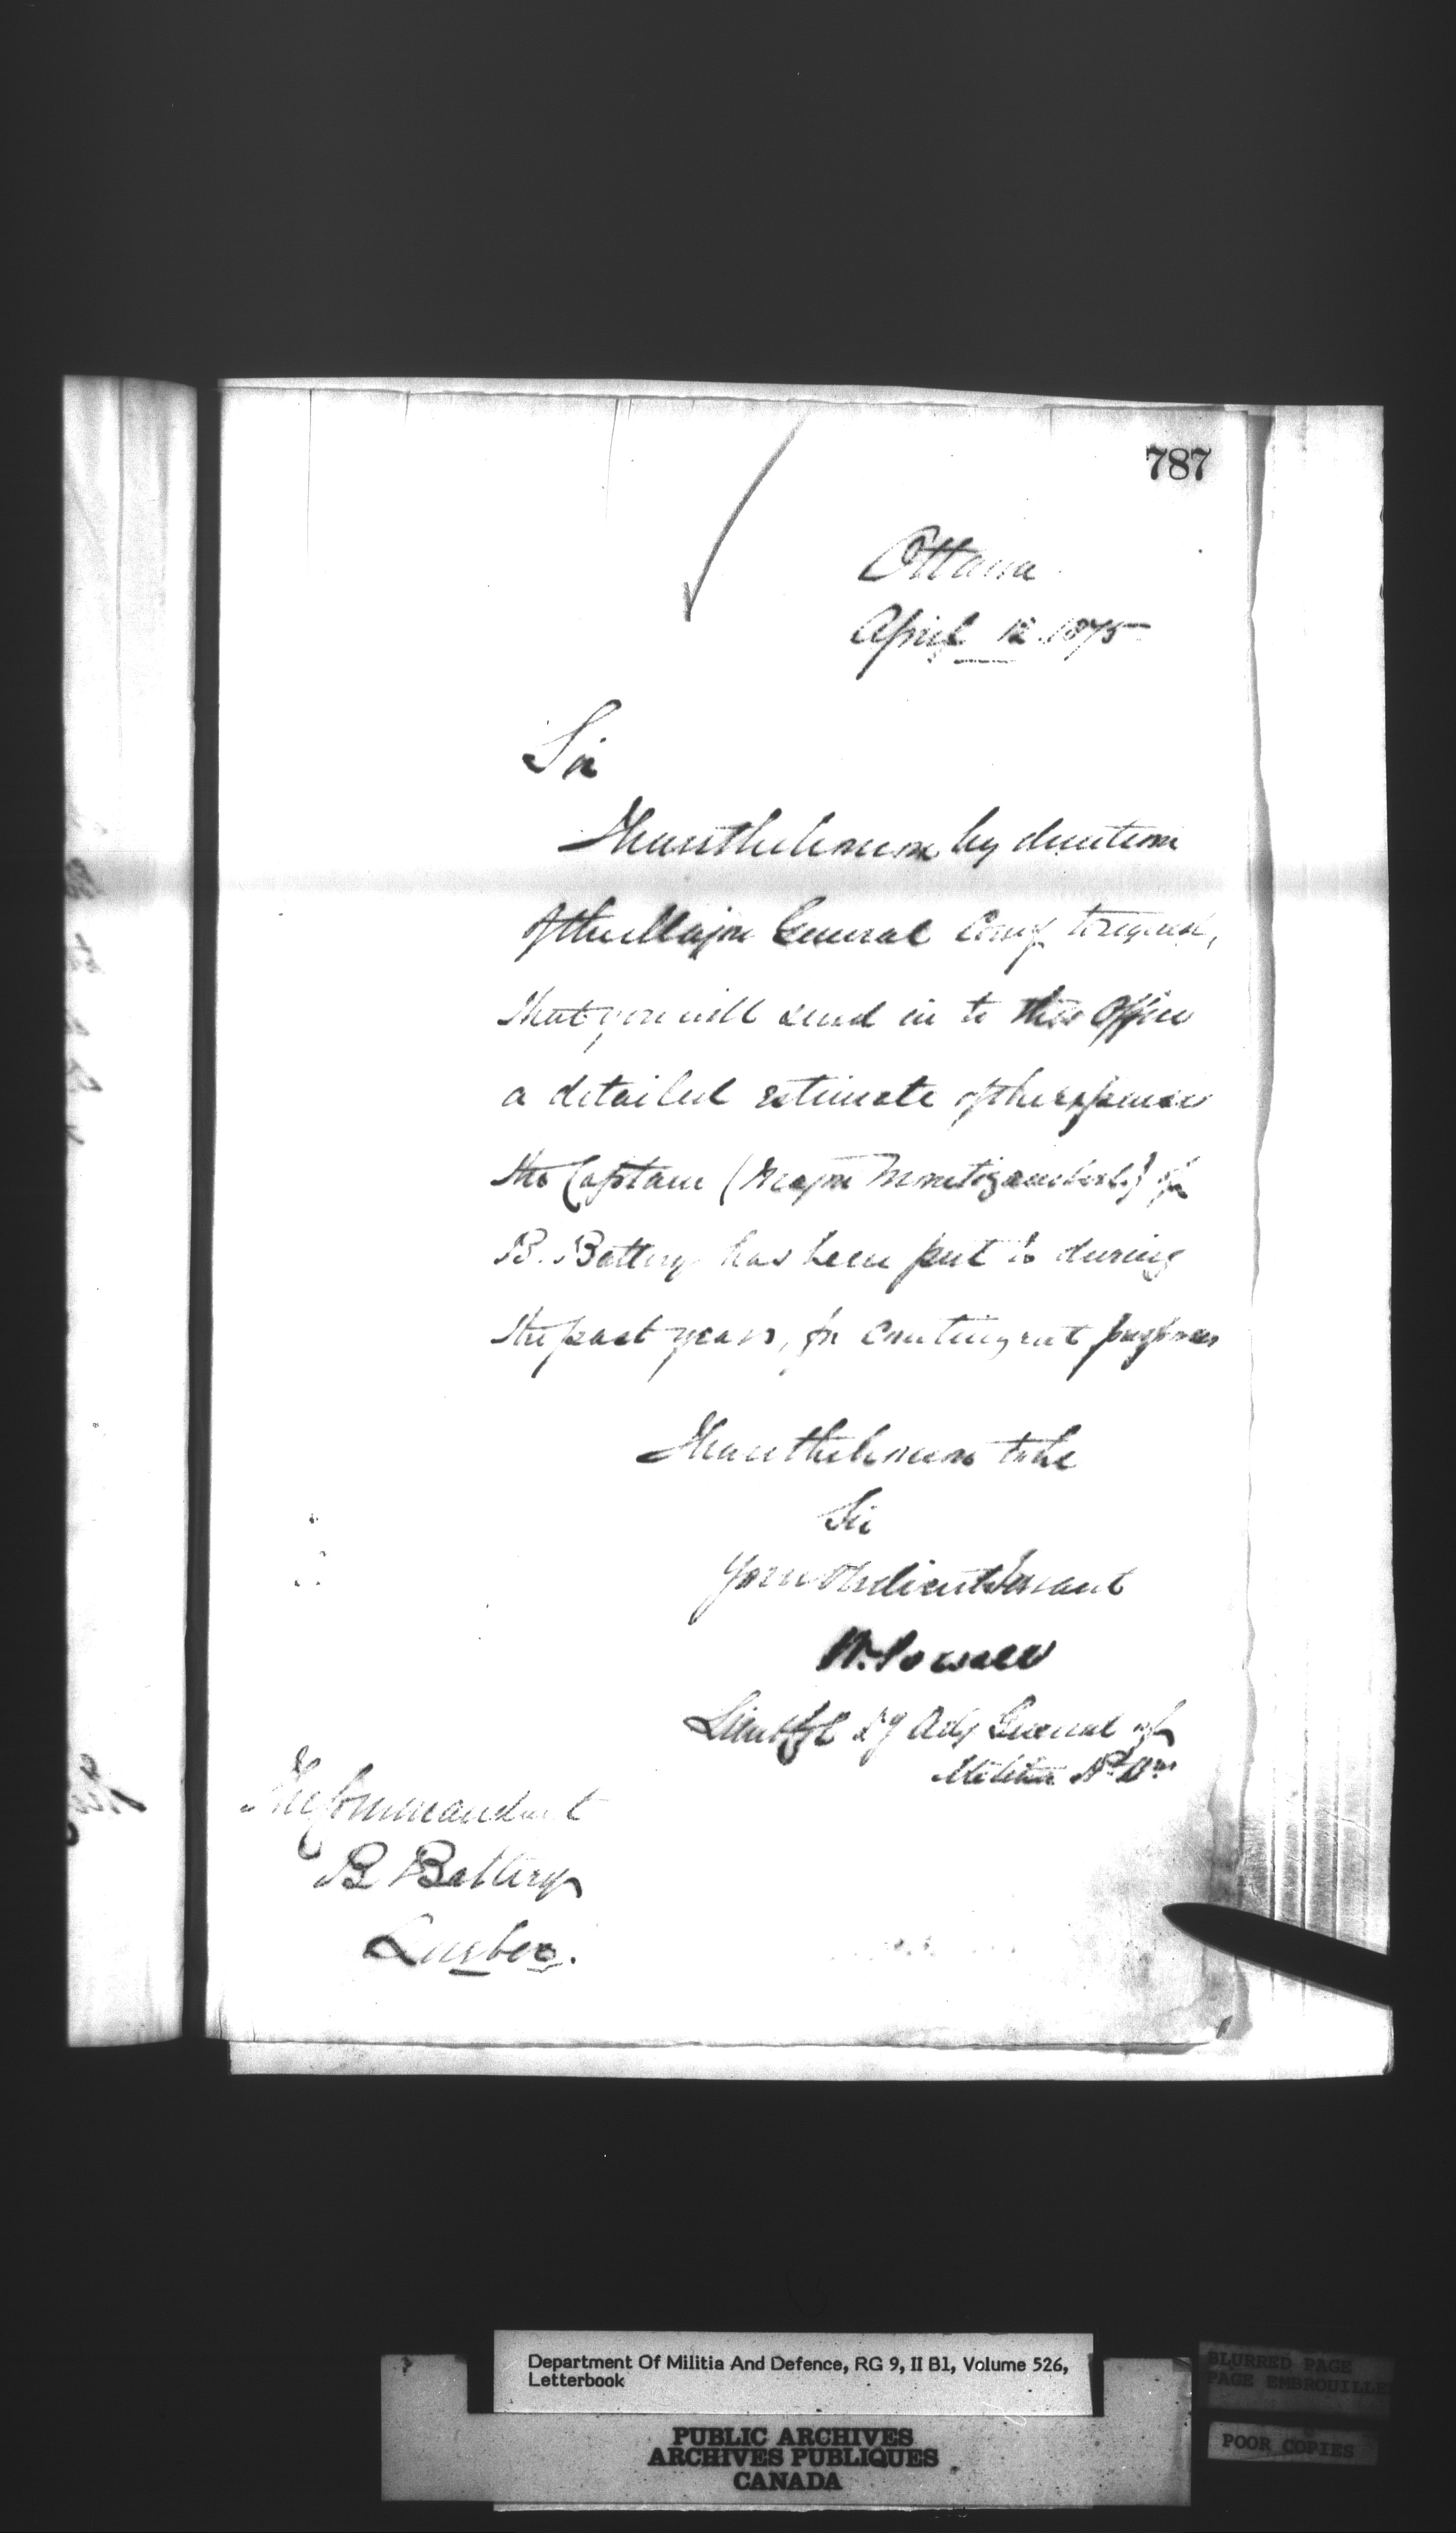 787
Ottawa
April 12 1875
Sir
I have the honour by direction
of the Major General Comg to request,
that you will send in to this Office
a detailed estimate of the expenses
the Captain (Major Montizambert) of
B. Battery has been put to during
the past years, for contingent purposes
I have the honour to be
Sir
Your Obedient Servant
W. Powell
Lieut Col Dy Adj General of
Militia
The Commandant
B Battery
Quebec.
Department Of Militia And Defence, RG 9, II B1, Volume 526,
Letterbook
PUBLIC ARCHIVES
ARCHIVES PUBLIQUES
CANADA
BLURRED PAGE
PAGE EMBROUILLEE
POOR COPIES